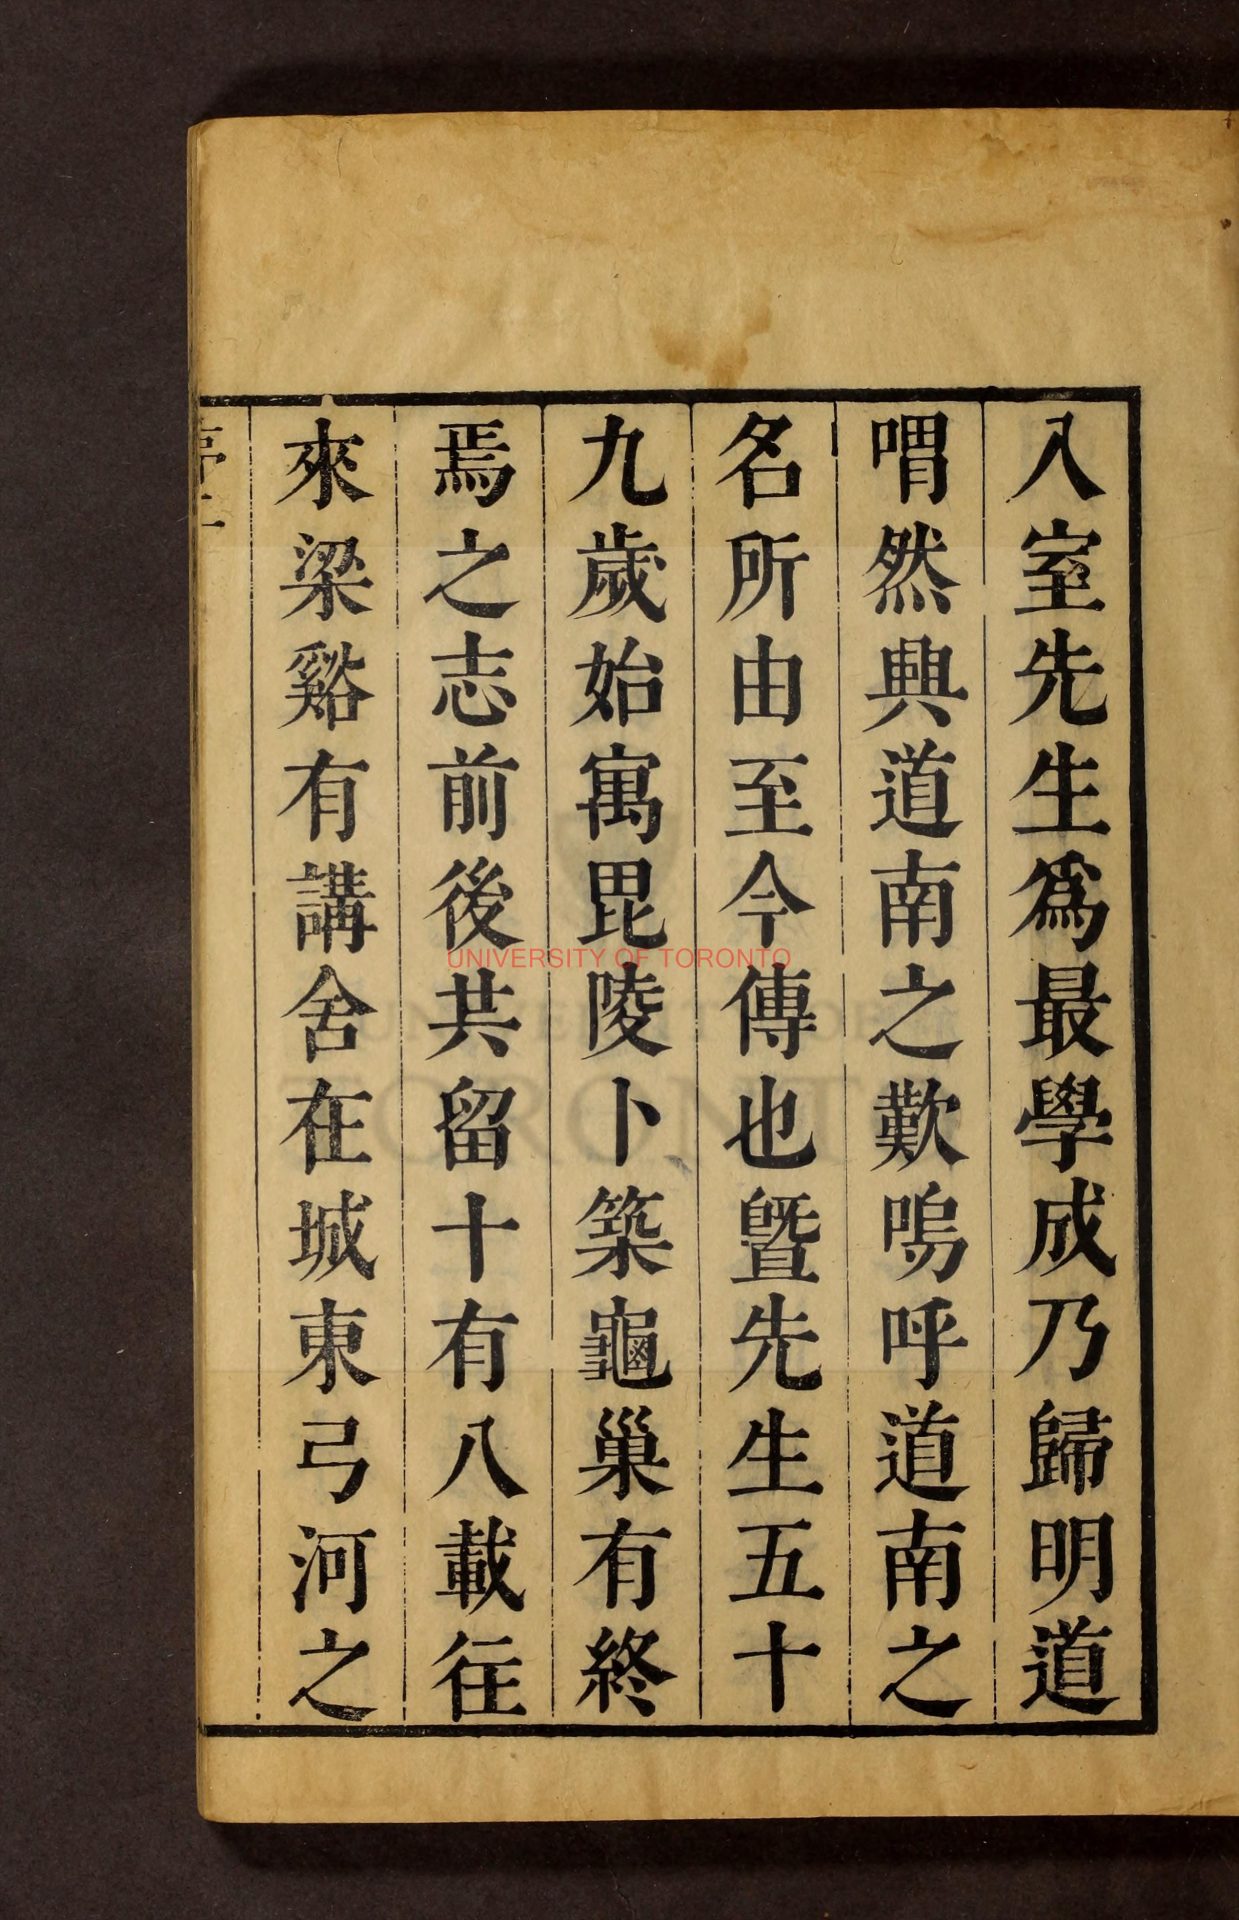 入室先生爲最學成乃歸明道
喟然興道南之歎嗚呼道南之
名所由至今傳也曁先生五十
九歲始寓毘陵卜築龜巢有終
焉之志前後共留十有八載往
來梁谿有講舍在城東弓河之
UNIVERSITY OF TORONTO